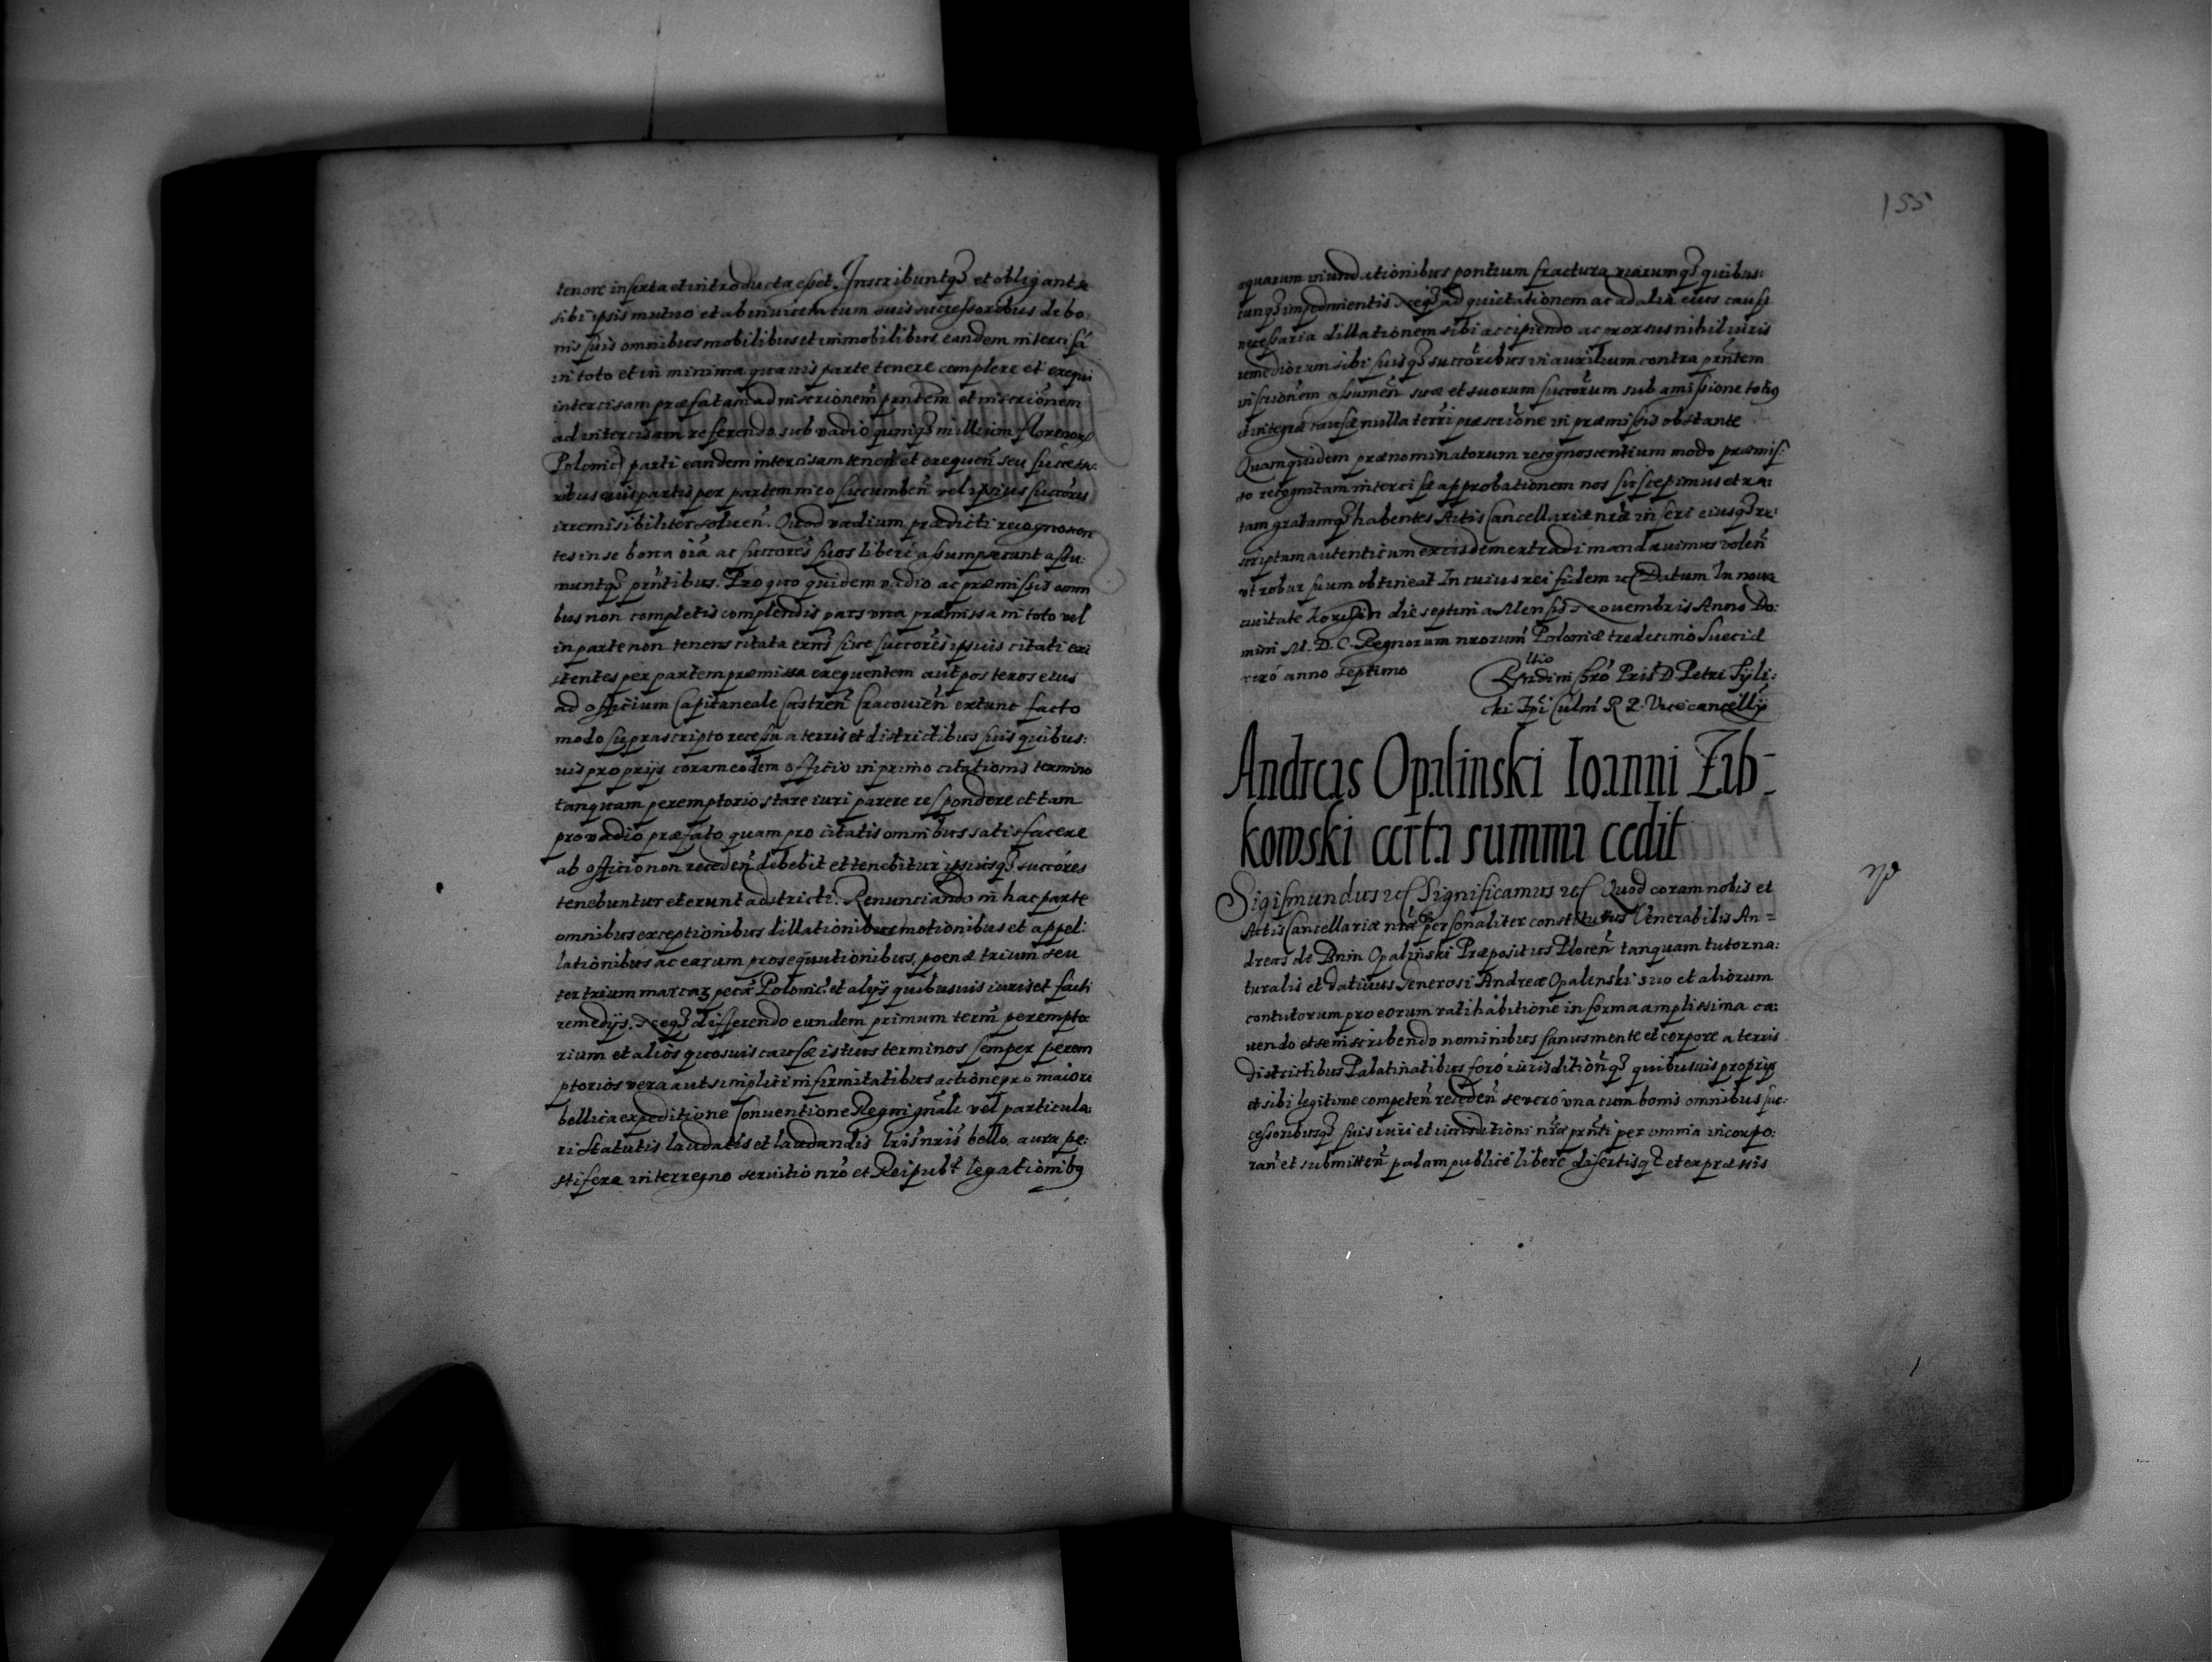 tenore inserta et introducta esset. Inscribuntq₃ et obligant se
sibi ipsis mutuo et ab inuicem cum suis successoribus de bo:
nis suis omnibus mobilibus et immobilibus eandem intercisã
in toto et in minima quauis parte tenere complere et exequi
intercisam præfatam ad inscrionem̃ prñtem et inscrionem̃
ad intercisam referendo sub vadio quinq₃ millium florenorʒ
Polonic̃ parti eandem intercisam teneñ et exequeñ seu successo:
ribus eius partis per partem in eo succumbeñ vel ipsius succõris
irremisibiliter solueñ. Quod vadium prædicti recognoscen
tes in se bona oĩa ac succores̃ suos liberè assumpserunt assu:
muntq₃ prñtibus. Pro quo quidem vadio ac præmissis omni
bus non completis complendis pars vna præmissa in toto vel
in parte non tenens citata exñs siue succores̃ ipsius citati exi
stentes per partem præmissa exequentem aut posteros eius
ad officium Capitaneale Castreñ Cracouieñ extunc facto
modo suprascripto recessu a terris et districtibus suis quibus:
uis proprijs coram eodem officio in primo citationis termino
tanquam peremptorio stare iuri parere respondere et tam
pro vadio præfato quam pro citatis omnibus satisfacere
ab officio non recedeñ debebit et tenebitur ipsiusq₃ succores
tenebuntur et erunt adstricti. Renunciando in hac parte
omnibus exceptionibus dillationibus motionibus et appel:
lationibus ac earum prosequutionibus, poenæ trium seu
ter trium marcaʒ pecæ̃ Polonic̃ et alijs quibusuis iuris et facti
remedijs. Neq₃ differendo eundem primum term̃ perempto
rium et aliòs quosuis causæ istius terminos semper perem
ptorios vera aut simplici infirmitatibus actione pro maiori
bellica expeditione Conuentione Regni gnãli vel particula:
ri Statutis laudatis et laudandis lris̃ nris̃ bello aura pe:
stifera interregno seruitio nrõ et Reipubᵗ legationibɡ
155
aquarum inundationibus pontium fractura viarumq₃ quibus:
cunq₃ impedimentis. Neq₃ ad quietationem ac ad alia eius causæ
necessaria dillationem sibi accipiendo ac prorsus nihil iuris
remediorum sibi suisq₃ succõribus in auxilium contra prñtem
inscrionem̃ assumeñ suæ et suorum succorum̃ sub amissione totiɡ
et integræ causæ nulla terri præscrione̊ in præmissis obstante
Quamquidem prænominatorum recognoscentium modo præmis:
so recognitam intercisæ approbationem nos suscepimus et ra:
tam gratamq₃ habentes Actis Cancellariæ nræ̃ inseri eiusq₃ re:
scriptum autenticum ex eisdem extradi mandauimus voleñ
vt robur suum obtineat In cuius rei fidem ꝛc Datum In noua
ciuitate Korczin die septima Mensis Nouembris Anno Do:
mini M. D. C. Regnorum nrorum̃ Poloniæ tredecimo Sueciæ
verò anno septimo
Petri Tyli:
cki Epĩ Culmᵗ R P. Vicecancellij
Andreas Opalinski Ioanni Zab-
kowski certa summa cedit
Sigismundus ꝛc Significamus ꝛc Quod coram nobis et
Actis Cancellariæ nræ̃ personaliter constitutus Venerabilis An=
dreas de Bnin Opalinski Præpositus Ploceñ tanquam tutor na:
turalis et datiuus Generosi Andreæ Opalenski suo et aliorum
contutorum pro eorum ratihabitione in forma amplissima ca:
uendo et se inscribendo nominibus sanus mente et corpore a terris
Districtibus Palatinatibus foró iurisditioñq₃ quibusuis proprijs
et sibi legitime competeñ recedeñ se verò vna cum bonis omnibus suc:
cessoribusq₃ suis iuri et iurisditioni nræ̃ prñti per omnia incorpo:
rañ et submitteñ palam publicè liberè disertisq₃ et expressis